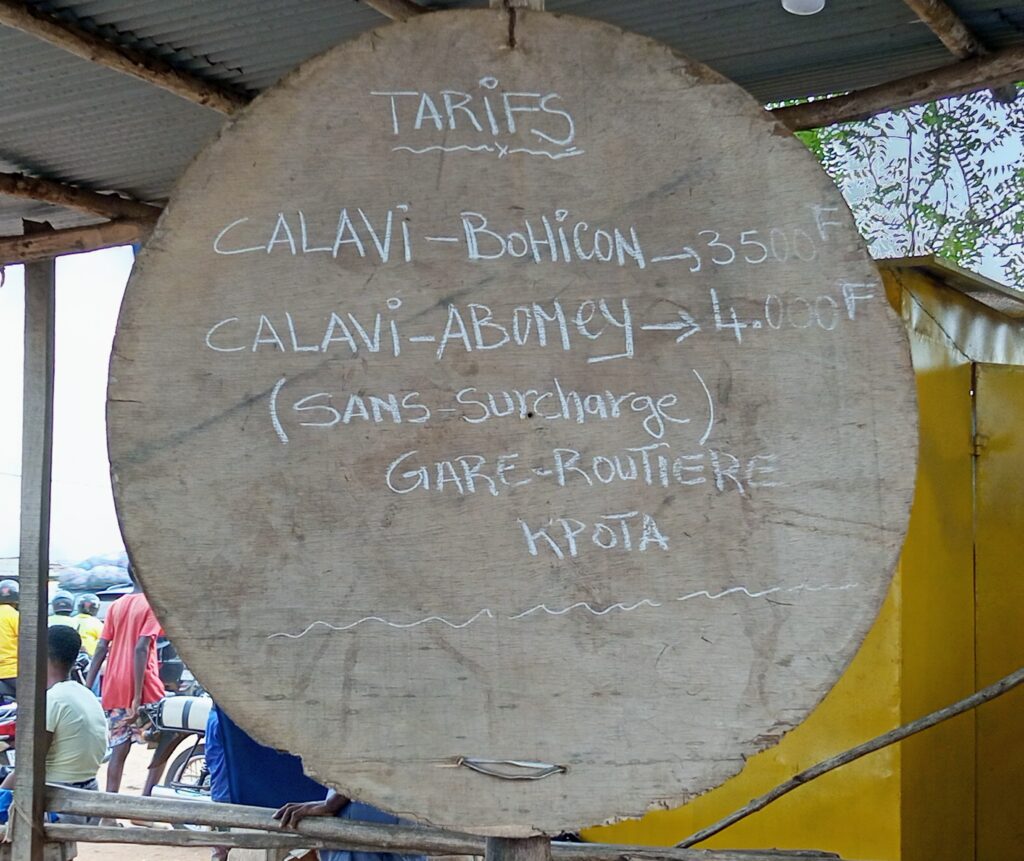 TARiFS
CALAVi-BOHiCON→3500F
CALAVi-ABOMey→4.000F
(SANS-Surcharge)
GARE-ROUTiERE
KPOTA